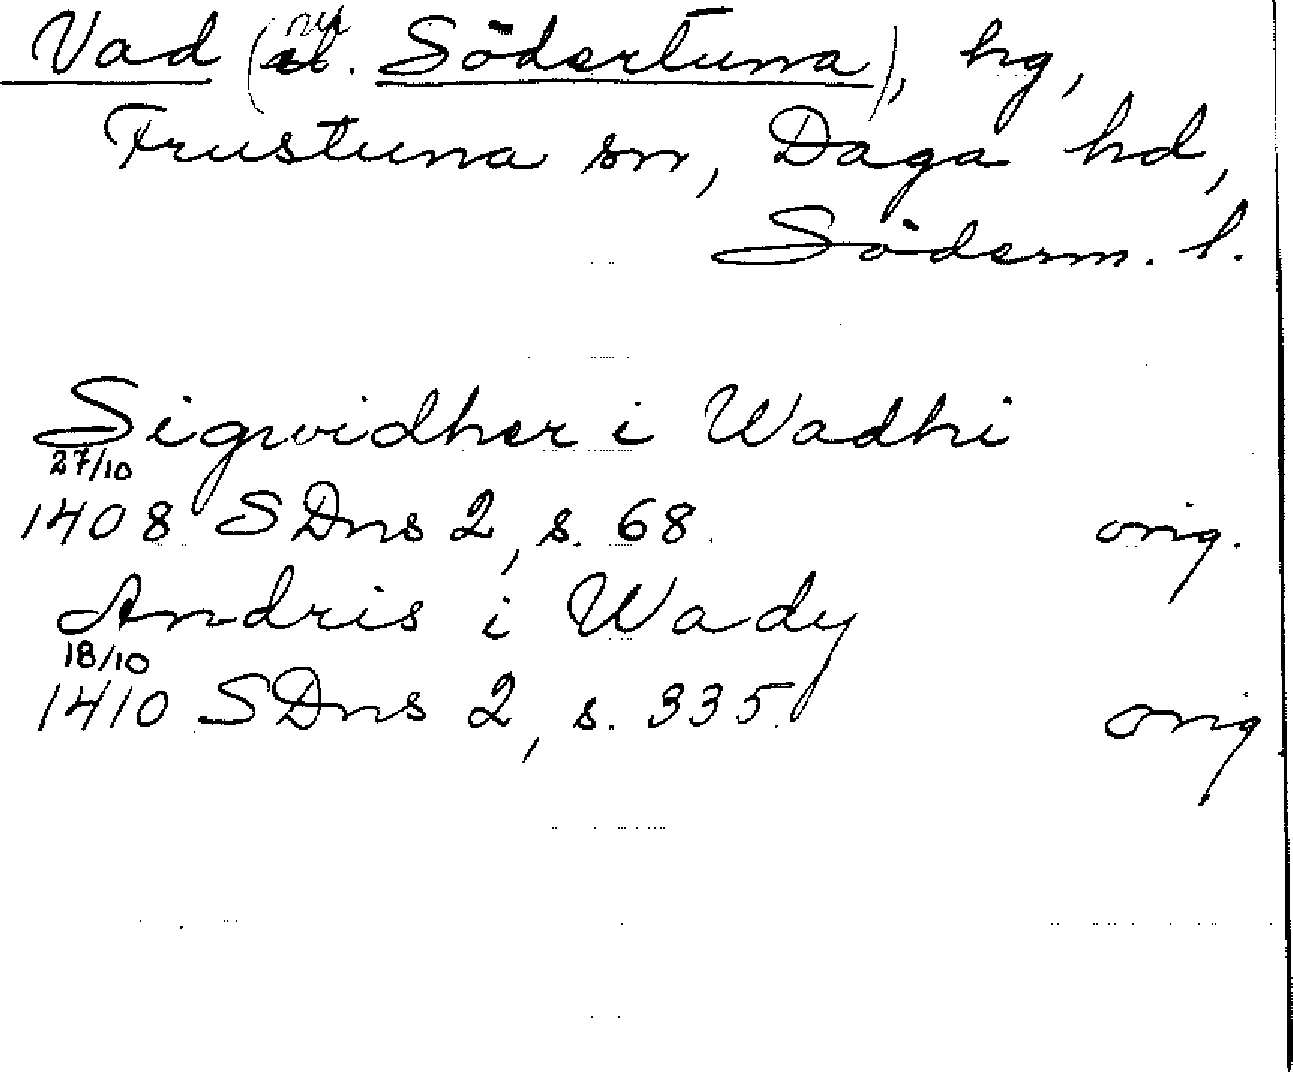 Vad (nu Södertuna), hg,
Frustuna sn, Daga hd,
Söderm. l.
Sigwidher i Wadhi
27/10
1408 SDns 2, s. 68. orig.
Andris i Wady
18/10
1410 SDns 2, s. 335. orig